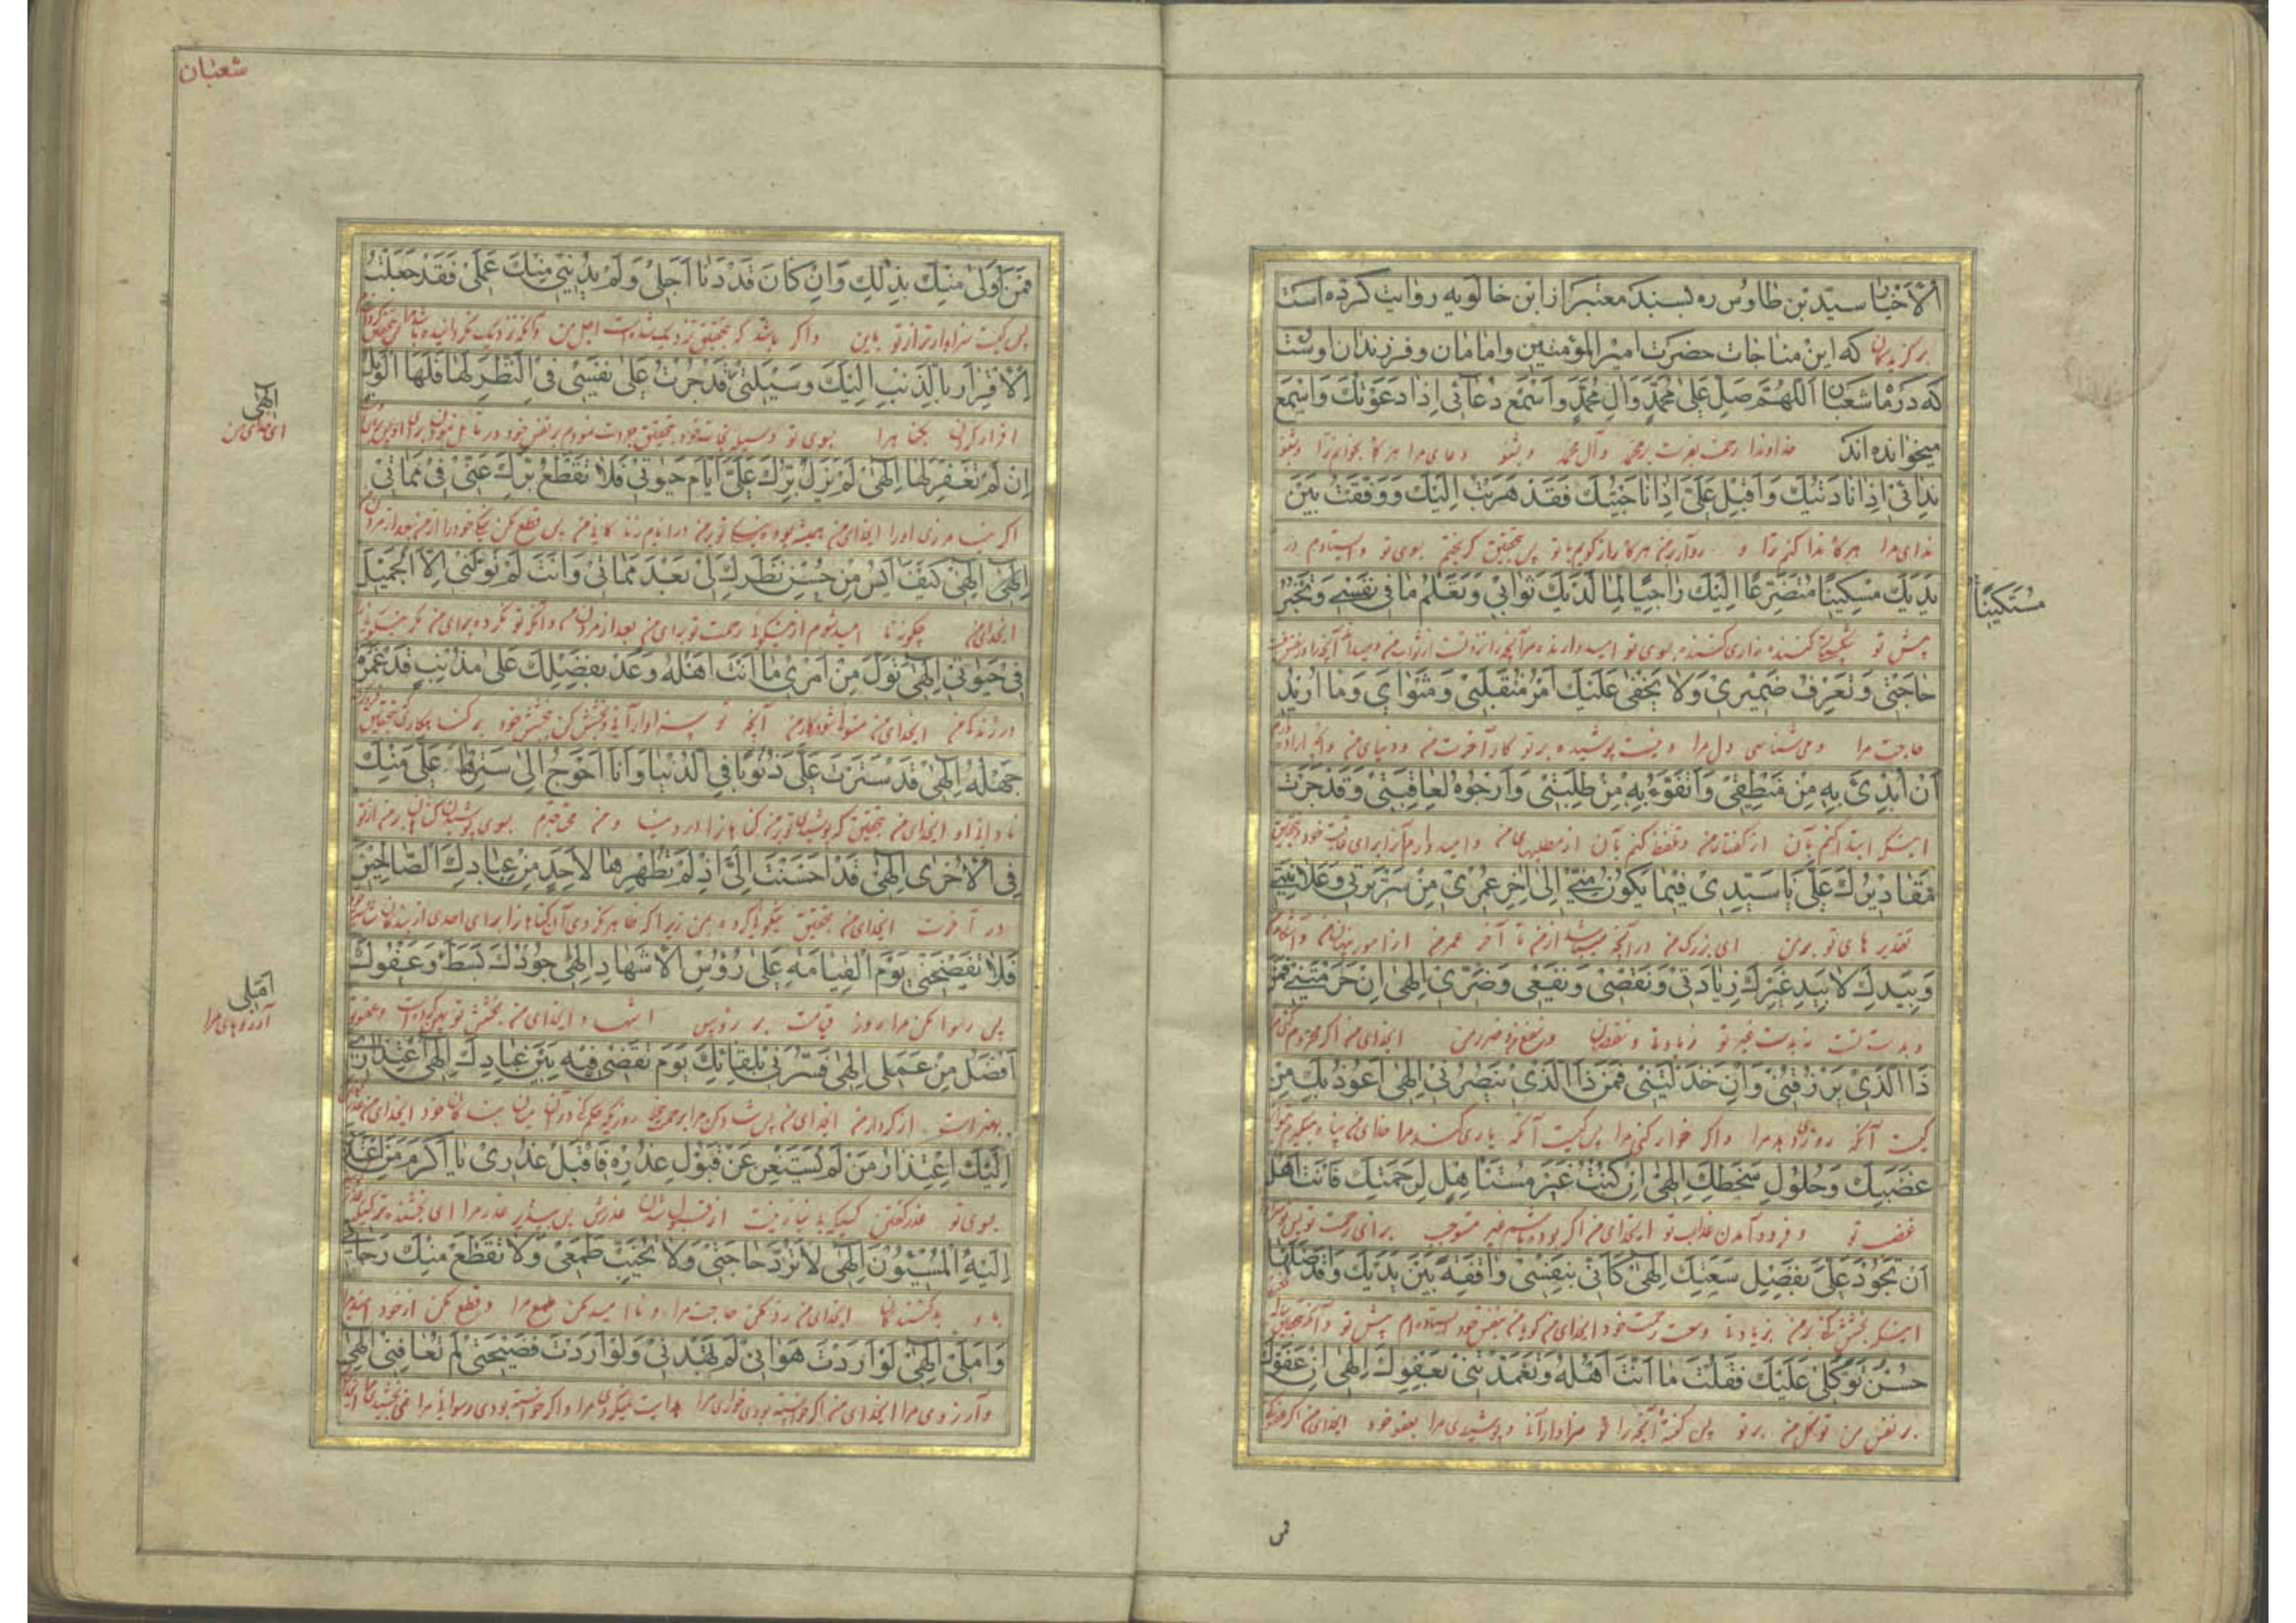 الْاَخْيٰارِ سيّد بن طاوُس ره بسند معتبر از ابن خالويه روايت كرده است
برگزیدگان كه اين مناجات حضرت امير المؤمنين و امامان و فرزندان اوست
كه در ماه شعبان اَللّٰهُمَّ صَلِّ عَلىٰ مُحَمَّدٍ وَآلِ مُحَمَّدٍ وَاسْمَعْ دُعٰائى اِذٰا دَعَوْتُكَ وَاسْمَعْ
ميخوانده اند خداوندا رحمت بفرست بر محمد و آل محمد و بشنو دعای مرا هرگاه بخوانم ترا و بشنو
نِدٰائى اِذٰا نٰادَيْتُكَ وَاَقْبِلْ عَلَىَّ اِذٰا نٰاجَيْتُكَ فَقَدْ هَرَبْتُ اِلَيْكَ وَوَقَفْتُ بَيْنَ
ندای مرا هرگاه ندا کنم ترا و رو آور بمن هرگاه راز گویم با تو پس بتحقیق گریختم بسوی تو و ایستادم در
يَدَيْكَ مُسْتَكينًا مُتَضَرِّعًا اِلَيْكَ رٰاجِيًا لِمٰا لَدَيْكَ ثَوٰابى وَتَعْلَمُ مٰا فى نَفْسى وَتَخْبُرُ
مُسْتَكينًا
پیش تو زاری کننده بسوی تو امیدوارنده مر آنچه را نزد تست از ثواب من و میدانی آنچه را در نفس
حٰاجَتى وَتَعْرِفُ ضَميرى وَلٰا يَخْفىٰ عَلَيْكَ اَمْرُ مُنْقَلَبى وَمَثْوٰاىَ وَمٰا اُريدُ
حاجت مرا و می شناسی دل مرا و نیست پوشیده بر تو کار آخرت من و دنیای من و آنچه اراده
اَنْ اُبْدِئَ بِهِ مِنْ مَنْطِقى وَاَتَفَوَّهُ بِهِ مِنْ طَلِبَتى وَاَرْجُوهُ لِعٰاقِبَتى وَقَدْ جَرَتْ
اینکه ابتدا کنم بآن از گفتار من و تلفظ کنم بآن از مطلبهای من و امید دارم آنرا برای عاقبت خود و بتحقیق
مَقٰاديرُكَ عَلَىَّ يٰا سَيِّدى فيمٰا يَكُونُ مِنّى اِلىٰ اٰخِرِ عُمْرى مِنْ سَريرَتى وَعَلٰانِيَتى
تقدیر های تو بر من ای بزرگ من در آنچه میباشد از من تا آخر عمر من از امور پنهان من و آشکار
وَبِيَدِكَ لٰا بِيَدِ غَيْرِكَ زِيٰادَتى وَنَقْصى وَنَفْعى وَضَرّى اِلٰهى اِنْ حَرَمْتَنى فَمَنْ
و بدست تست نه بدست غیر تو زیادتی و نقصان و نفع من و ضرر من ایخدای من اگر محروم کنی
ذَا الَّذى يَرْزُقُنى وَاِنْ خَذَلْتَنى فَمَنْ ذَا الَّذى يَنْصُرُنى اِلٰهى اَعُوذُ بِكَ مِنْ
کیست آنکه روزی دهد مرا و اگر خوار کنی مرا پس کیست آنکه یاری کند مرا خدای من پناه میگیرم
غَضَبِكَ وَحُلُولِ سَخَطِكَ اِلٰهى اِنْ كُنْتُ غَيْرَ مُسْتَأْهِلٍ لِرَحْمَتِكَ فَاَنْتَ اَهْلٌ
غضب تو و فرود آمدن عذاب تو ایخدای من اگر بوده باشم غیر مستوجب برای رحمت تو پس تو
اَنْ تَجُودَ عَلَىَّ بِفَضْلِ سَعَتِكَ اِلٰهى كَاَنّى بِنَفْسى وٰاقِفَةٌ بَيْنَ يَدَيْكَ وَقَدْ اَظَلَّهٰا
اینکه بخشش کنی بر من بزیادتی وسعت رحمت خود ایخدای من گویا من بنفس خود ایستاده ام پیش تو و آنکه بتحقیق
حُسْنُ تَوَكُّلى عَلَيْكَ فَقُلْتَ مٰا اَنْتَ اَهْلُهُ وَتَغَمَّدْتَنى بِعَفْوِكَ اِلٰهى اِنْ عَفَوْتَ
بر نفس من توکل من بر تو پس گفتی آنچه را تو سزاوار آنی و پوشیدی مرا بعفو خود ایخدای من اگر عفو کنی
شعبان
فَمَنْ اَوْلىٰ مِنْكَ بِذٰلِكَ وَاِنْ كٰانَ قَدْ دَنٰا اَجَلى وَلَمْ يُدْنِنى مِنْكَ عَمَلى فَقَدْ جَعَلْتُ
پس کیست سزاوارتر از تو باین و اگر باشد که بتحقیق نزدیک شده است اجل من و آنکه نزدیک نگردانیده باشد
الْاِقْرٰارَ بِالذَّنْبِ اِلَيْكَ وَسيلَتى قَدْ جُرْتُ عَلىٰ نَفْسى فِى النَّظَرِ لَهٰا فَلَهَا الْوَيْلُ
اِلٰهى
ای خدای من
اقرار کردن بگناه را بسوی تو وسیله نجات خود بتحقیق جور نمودم بر نفس خود در تأمل نمودن برای او پس
اِنْ لَمْ تَغْفِرْ لَهٰا اِلٰهى لَمْ يَزَلْ بِرُّكَ عَلَىَّ اَيّٰامَ حَيٰوتى فَلٰا تَقْطَعْ بِرَّكَ عَنّى فى مَمٰاتى
اگر نیامرزی او را ایخدای من همیشه بود نیکی تو بر من در ایام زندگانی من پس قطع مکن نیکی خود را از من بعد از مردن
اِلٰهى اِلٰهى كَيْفَ اٰيَسُ مِنْ حُسْنِ نَظَرِكَ لى بَعْدَ مَمٰاتى وَاَنْتَ لَمْ تُوَلِّنى اِلَّا الْجَميلَ
ایخدای من چگونه نا امید شوم از نیکی رحمت تو برای من بعد از مردن من و آنکه تو نکرده برای من مگر نیکی
فى حَيٰوتى اِلٰهى تَوَلَّ مِنْ اَمْرى مٰا اَنْتَ اَهْلُهُ وَعُدْ بِفَضْلِكَ عَلىٰ مُذْنِبٍ قَدْ غَمَرَهُ
در زندگی من ایخدای من متولی شو از کار من آنچه تو سزاوار آنی و بخشش کن بخشش خود بر گناهکاری که بتحقیق
جَهْلُهُ اِلٰهى قَدْ سَتَرْتَ عَلَىَّ ذُنُوبًا فِى الدُّنْيٰا وَاَنَا اَحْوَجُ اِلىٰ سَتْرِهٰا عَلَىَّ مِنْكَ
نادانی او ایخدای من بتحقیق که پوشیدی تو بر من گناهانرا در دنیا و من محتاجترم بسوی پوشیدن گناهان بر من از تو
فِى الْاُخْرىٰ اِلٰهى قَدْ اَحْسَنْتَ اِلَىَّ اِذْ لَمْ تُظْهِرْهٰا لِاَحَدٍ مِنْ عِبٰادِكَ الصّٰالِحينَ
در آخرت ایخدای من بتحقیق نیکوئی کرده بمن زیرا که ظاهر نکردی آن گناهانرا برای احدی از بندگان شایسته خود
فَلٰا تَفْضَحْنى يَوْمَ الْقِيٰامَةِ عَلىٰ رُؤُسِ الْاَشْهٰادِ اِلٰهى جُودُكَ بَسَطَ وَعَفْوُكَ
اَمَلى
آرزوهای مرا
پس رسوا مکن مرا روز قیامت بر رؤس اشهاد ایخدای من بخشش تو پهن کرده است و عفو تو
اَفْضَلُ مِنْ عَمَلى اِلٰهى فَسُرَّنى بِلِقٰائِكَ يَوْمَ تَقْضى فيهِ بَيْنَ عِبٰادِكَ اِلٰهى اعْتِذٰارى
بهتر است از کردار من ایخدای من پس شاد کن مرا برحمت خود روزیکه حکم کنی در آن میان بندگان خود ایخدای من
اِلَيْكَ اِعْتِذٰارُ مَنْ لَمْ يَسْتَغْنِ عَنْ قَبُولِ عُذْرِهِ فَاقْبَلْ عُذْرى يٰا اَكْرَمَ مَنِ اعْتَذَرَ
بسوی تو عذر گفتن کسیکه بی نیاز نیست از قبول شدن عذرش پس بپذیر عذر مرا ای بخشنده تر کسیکه
اِلَيْهِ الْمُسيئُونَ اِلٰهى لٰا تَرُدَّ حٰاجَتى وَلٰا تُخَيِّبْ طَمَعى وَلٰا تَقْطَعْ مِنْكَ رَجٰائى
باو بدکنندگان ایخدای من رد مکن حاجت مرا و نا امید مکن طمع مرا و قطع مکن از خود امید مرا
وَاَمَلى اِلٰهى لَوْ اَرَدْتَ هَوٰانى لَمْ تَهْدِنى وَلَوْ اَرَدْتَ فَضيحَتى لَمْ تُعٰافِنى اِلٰهى
و آرزوی مرا ایخدای من اگر خواسته بودی خواری مرا هدایت نمیکردی مرا و اگر خواسته بودی رسوائی مرا نمی بخشیدی مرا